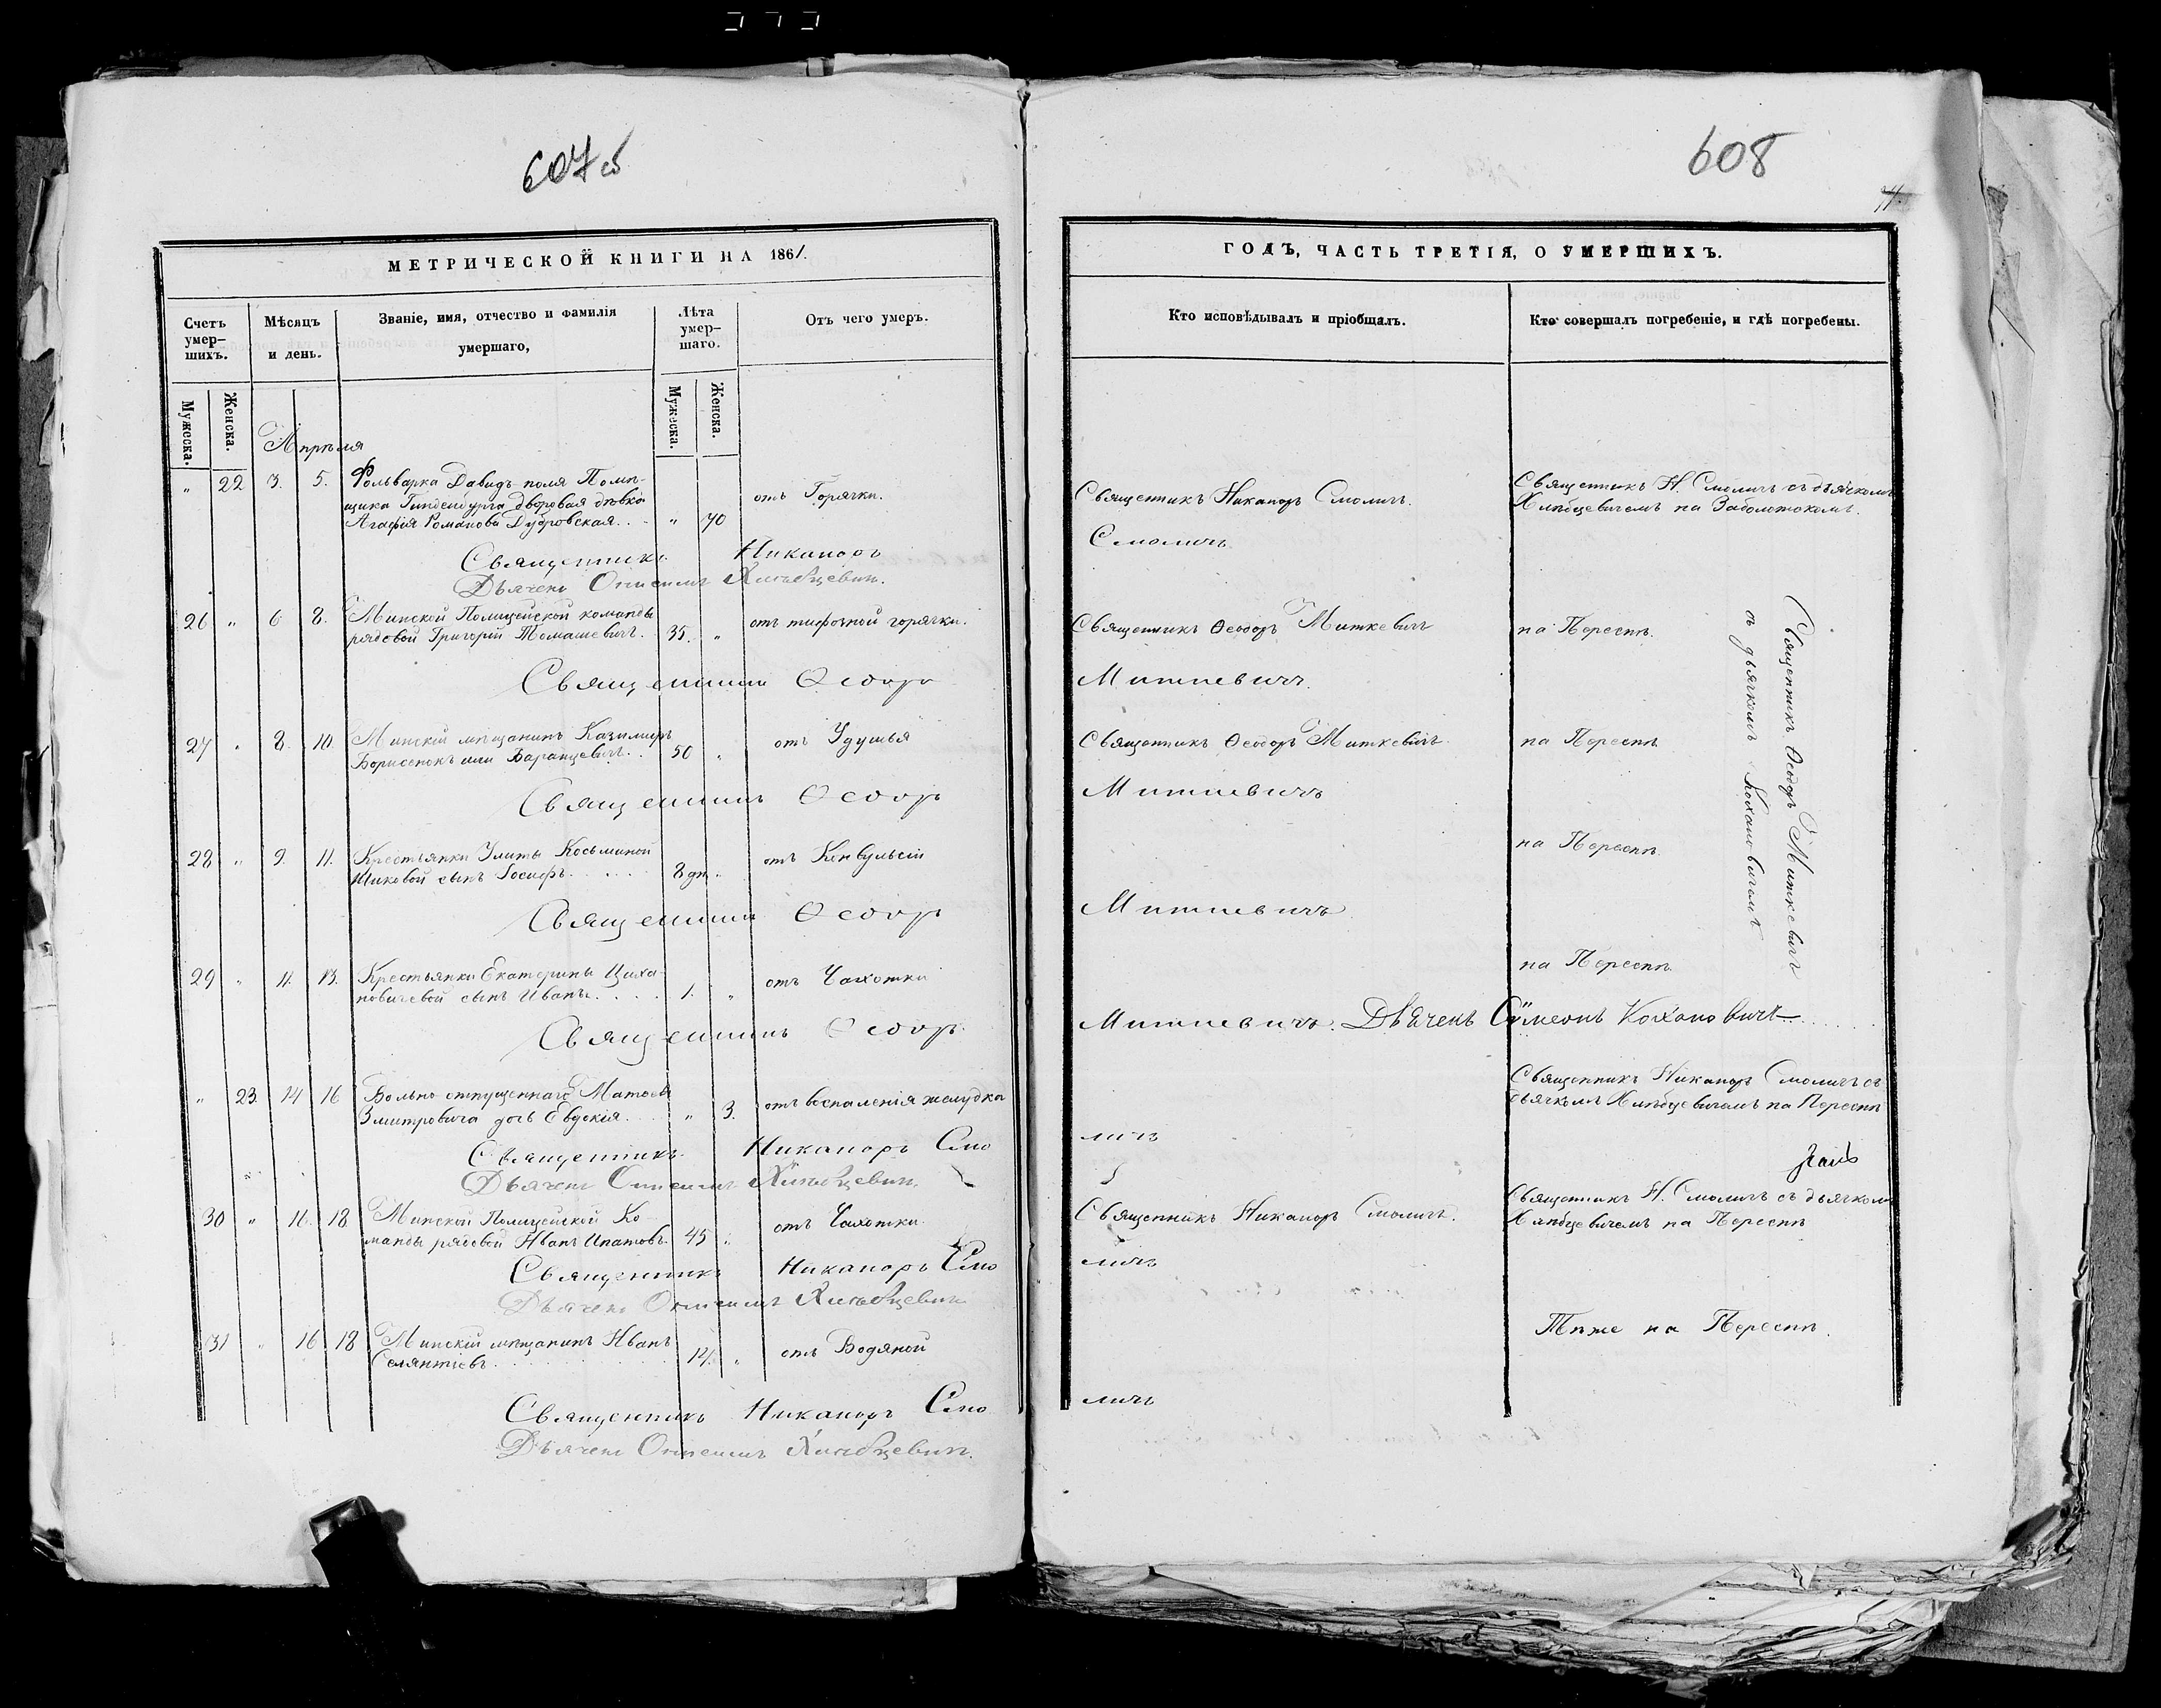 607об
МЕТРИЧЕСКОЙ КНИГИ НА 1861.
Счетъ умер-шихъ.
Мѣсяцъ и день.
Званіе, имя, отчество и фамилія умершаго,
Лѣта умер-шаго.
Отъ чего умеръ.
Мужеска. Женска. Мужеска. Женска.
Апрѣля
" 22 3. 5. Фольварка Давидъ-поля Помѣ-
щика Гинденбурга дворовая дѣвка
Агафія Романова Дубровская. . " 70
отъ Горячки.
Священникъ Никаноръ
Дьячекъ Онисимъ Хлѣбцевич.
26 " 6 8. Минской Полицейской команды
рядовой Григорій Томашевичъ. 35. "
отъ тифозной горячки.
Священникъ Ѳеодоръ
27 " 8. 10. Минскій мѣщанинъ Казимиръ
Борисенокъ или Варанцевичъ. . 50 "
отъ Удушья
Священникъ Ѳеодоръ
28 " 9. 11. Крестьянки Улиты Косьминой
сынъ Іосифъ. . . . . 8 дн. "
отъ Конвульсіи
Священникъ Ѳеодоръ
29 " 11. 13. Крестьянки Екатерины Циха-
новичевой сынъ Иванъ. . . . 1. "
отъ Чахотки
Священникъ Ѳеодоръ
" 23. 14 16 Вольно отпущеннаго Матвея
Змитровича дочь Евдокія. " 3.
отъ воспаленія желудка
Священникъ Никаноръ Смо
Дьячекъ Онисимъ Хлѣбцевич.
30 " 16. 18. Минской Полицейской Ко-
манды рядовой Иванъ Ипатовъ. 45 "
отъ Чахотки.
Священникъ Никаноръ Смо
Дьячекъ Онисимъ Хлѣбцевич
31 " 16 18 Минскій мѣщанинъ Иванъ
"
отъ Водяной
Священникъ Никаноръ Смо
Дьячекъ Онисимъ Хлѣбцевич.
608
ГОДЪ, ЧАСТЬ ТРЕТІЯ, О УМЕРШИХЪ.
Кто исповѣдывалъ и пріобщалъ.
Кто совершалъ погребеніе, и гдѣ погребены.
Священникъ Никаноръ Смоличъ.
Священникъ Н. Смоличъ съ дьячкомъ
Хлѣбцевичемъ на Заболотскомъ.
Смоличъ
Священникъ Ѳеодоръ Миткевичъ
на Переспѣ.
Миткевичъ.
Священникъ Ѳеодоръ Миткевичъ
на Переспѣ
Миткевичъ
на Переспѣ
Миткевичъ
на Переспѣ.
Священникъ Ѳеодоръ Миткевичъ
съ дьячкомъ Кохановичемъ
Миткевичъ. Дьячекъ Сѵмеонъ Кохановичъ
Священникъ Никаноръ Смоличъ съ
дьячкомъ Хлѣбцевичемъ на Переспѣ
личъ
Священникъ Никаноръ Смоличъ.
Священникъ Н. Смоличъ съ дьячкомъ
Хлѣбцевичемъ на Переспѣ
личъ
Тѣже на Переспѣ.
личъ